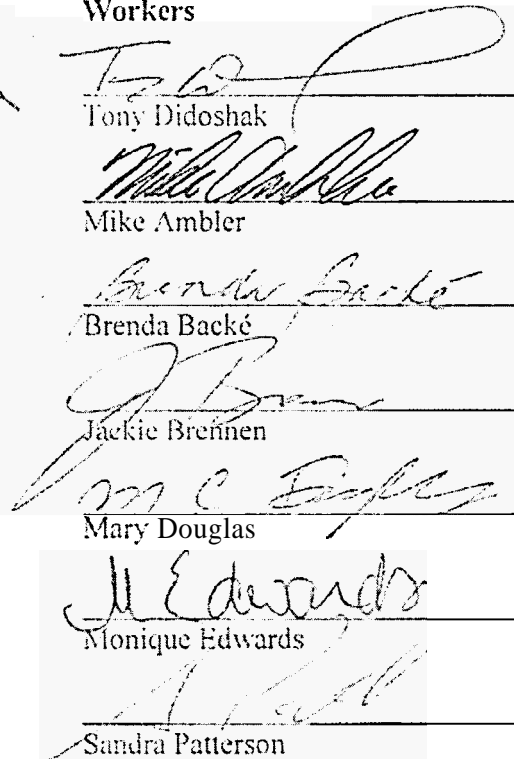 Workers
Tony Didoshak
Mike Ambler
Brenda Backé
Brenda Backé
Jackie Brennen
Mary Douglas
M Edwards
Monique Edwards
Sandra Patterson